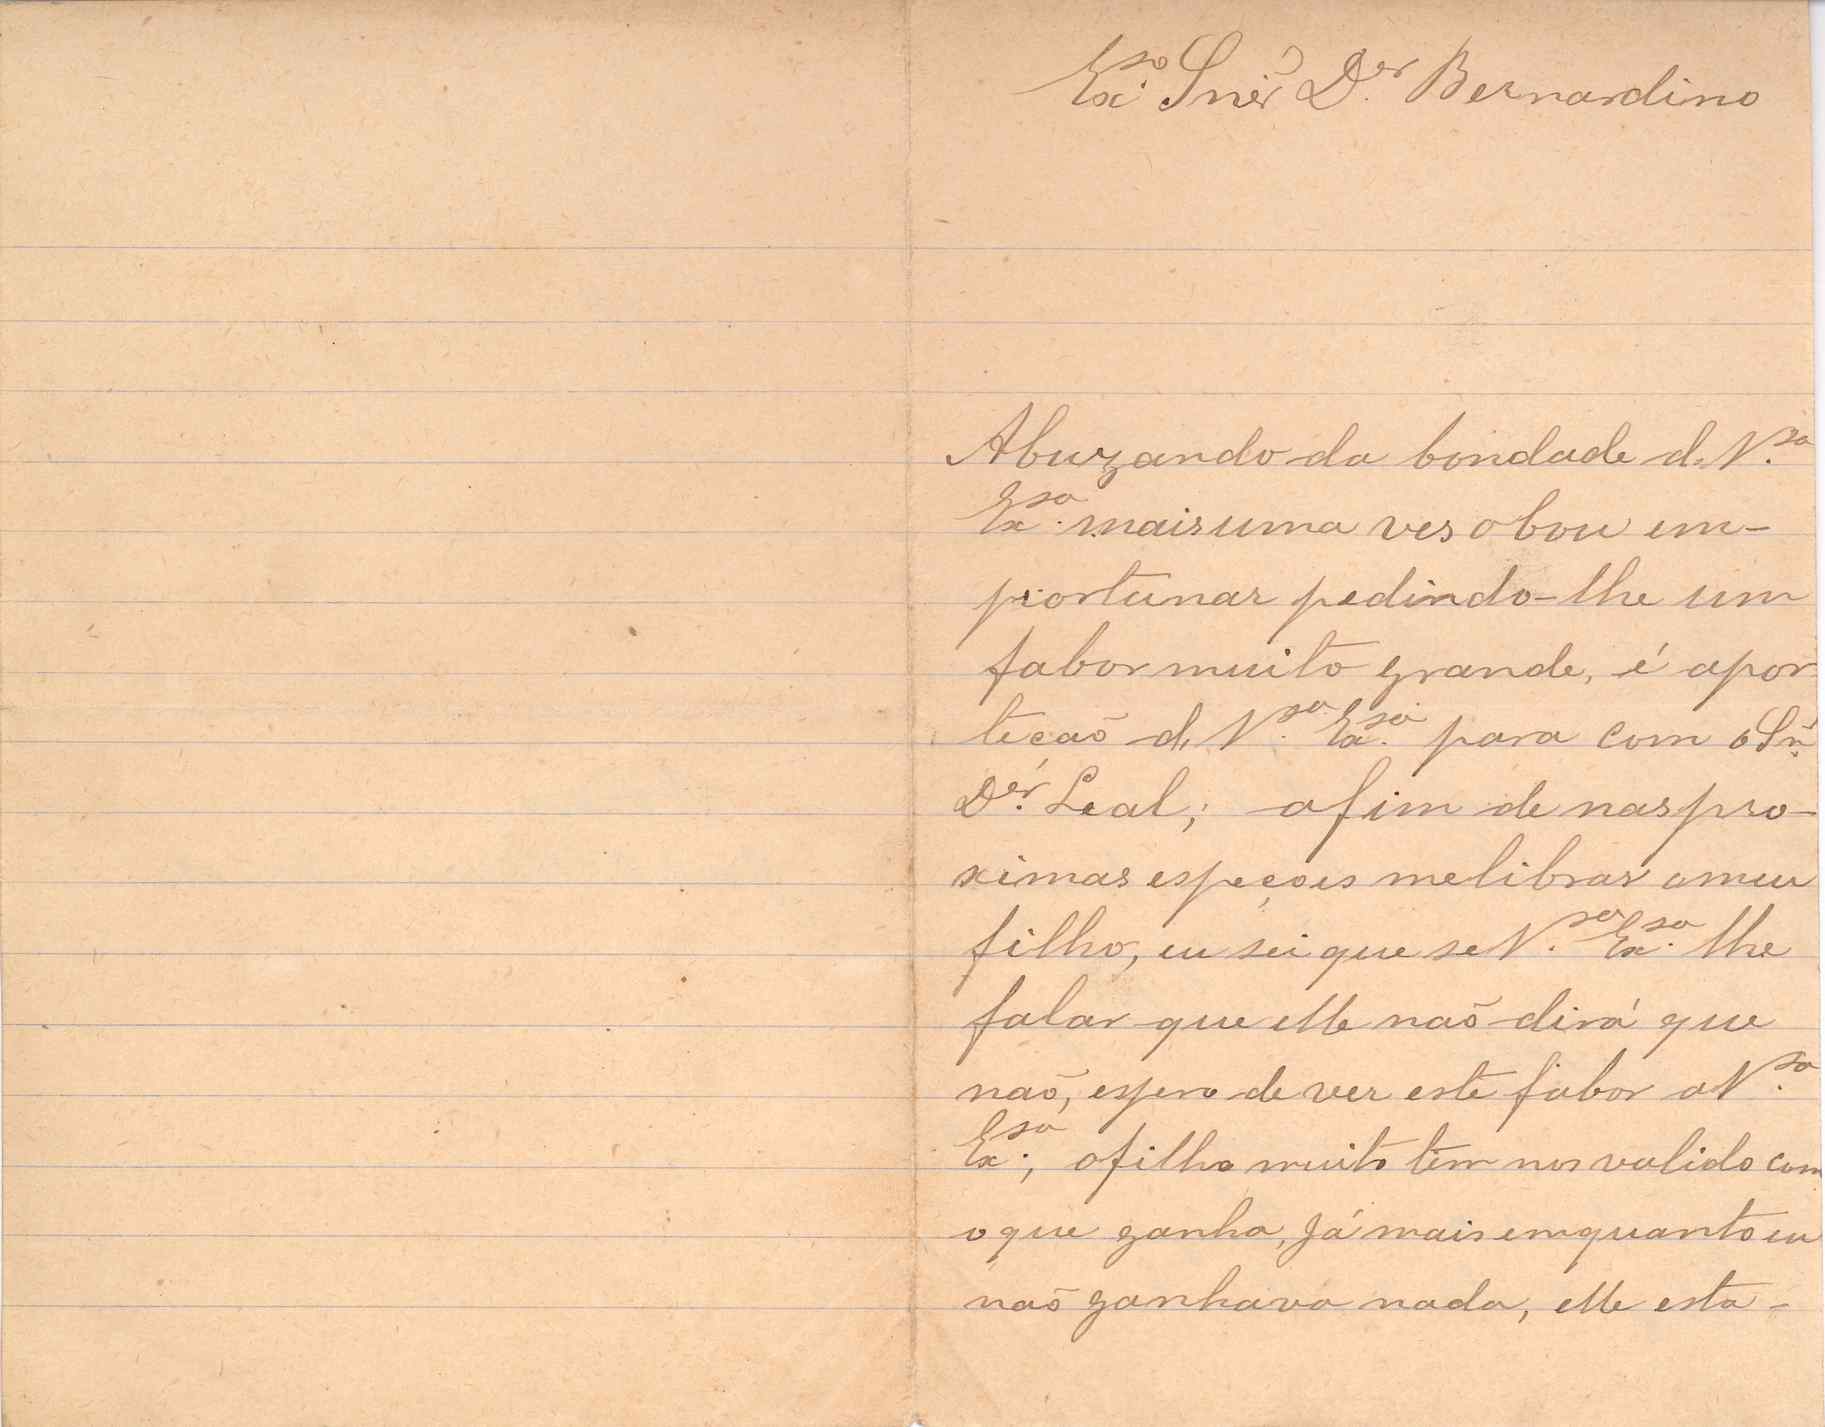 Ex.so Sner Der. Bernardino
Abuzando da bondade d. V.sa
Ex.sa mais uma ves o bou em-
portunar pedindo-lhe um
fabor muito grande, é apor
tecaõ d. V.sa Ex.sa para com o Sn.
Dér. Leal; afim de nas pro-
ximas espeçoes melibrar o meu
filho, eu sei que se V.sa Ex.sa lhe
falar que elle naõ dirá que
naõ, espero dever este fabor a V.sa
Ex.sa; o filho muito tem nos valido com
o que ganha, Já mais emquanto eu
naõ ganhava nada, elle esta-